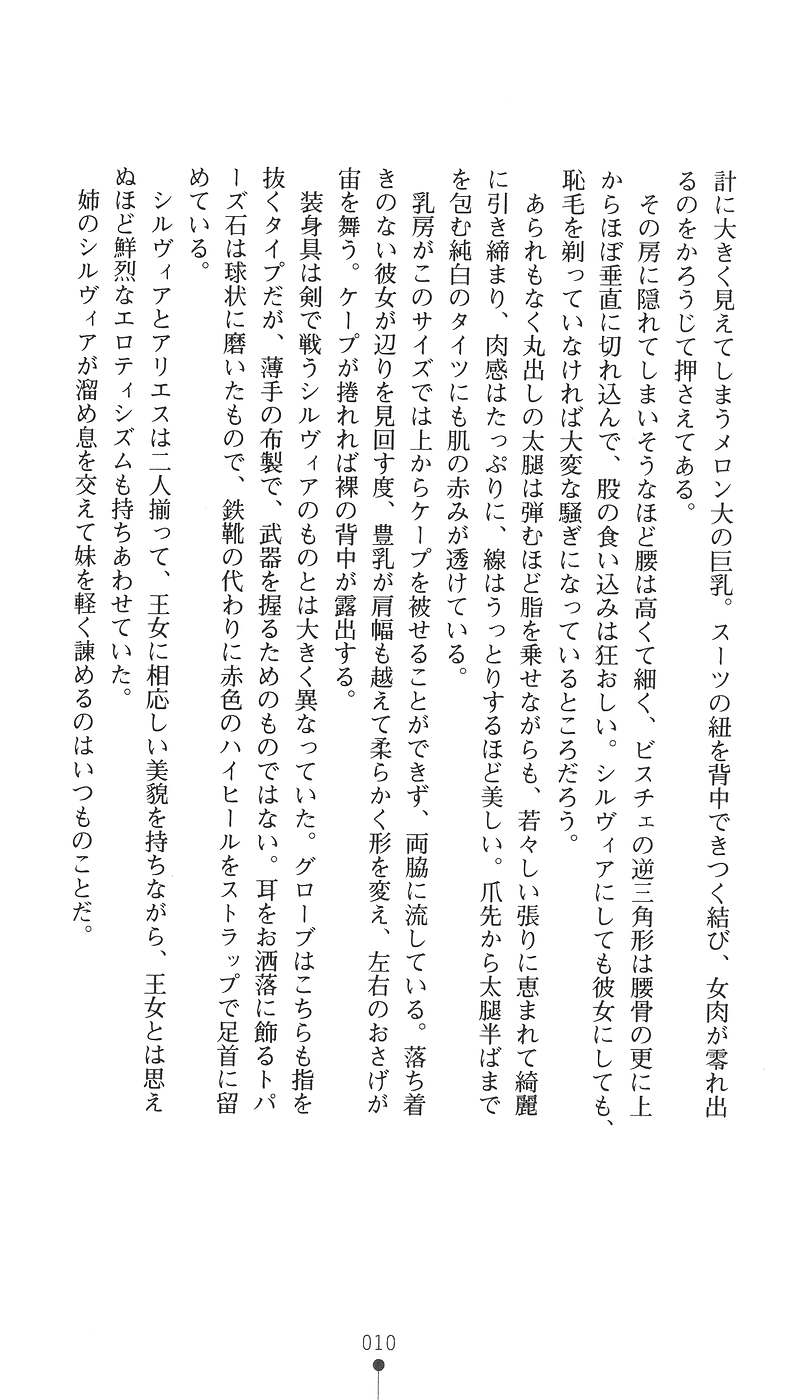 計に大きく見えてしまうメロン大の巨乳。スーツの紐を背中できつく結び、女肉が零れ出
るのをかろうじて押さえてある。
その房に隠れてしまいそうなほど腰は高くて細く、ビスチェの逆三角形は腰骨の更に上
からほぼ垂直に切れ込んで、股の食い込みは狂おしい。シルヴィアにしても彼女にしても、
恥毛を剃っていなければ大変な騒ぎになっているところだろう。
あられもなく丸出しの太腿は弾むほど脂を乗せながらも、若々しい張りに恵まれて綺麗
に引き締まり、肉感はたっぷりに、線はうっとりするほど美しい。爪先から太腿半ばまで
を包む純白のタイツにも肌の赤みが透けている。
乳房がこのサイズでは上からケープを被せることができず、両脇に流している。落ち着
きのない彼女が辺りを見回す度、豊乳が肩幅も越えて柔らかく形を変え、左右のおさげが
宙を舞う。ケープが捲れれば裸の背中が露出する。
装身具は剣で戦うシルヴィアのものとは大きく異なっていた。グローブはこちらも指を
抜くタイプだが、薄手の布製で、武器を握るためのものではない。耳をお洒落に飾るトパ
ーズ石は球状に磨いたもので、鉄靴の代わりに赤色のハイヒールをストラップで足首に留
めている。
シルヴィアとアリエスは二人揃って、王女に相応しい美貌を持ちながら、王女とは思え
ぬほど鮮烈なエロティシズムも持ちあわせていた。
姉のシルヴィアが溜め息を交えて妹を軽く諫めるのはいつものことだ。
010